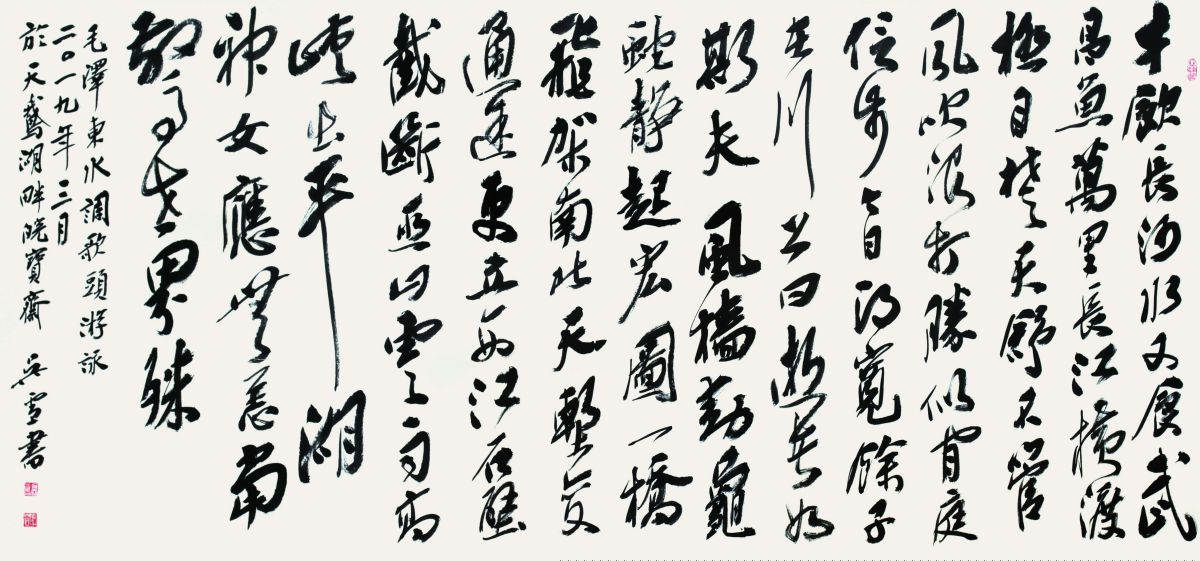 才飲長沙水又食武
昌魚萬里長江橫渡
極目楚天舒不管
風吹浪打勝似閒庭
信步今日得寬餘子
在川上曰逝者如
斯夫風檣動龜
蛇靜起宏圖一橋
飛架南北天塹變
通途更立西江石壁
截斷巫山雲雨高
峽出平湖
神女應無恙當
驚世界殊
毛澤東水調歌頭游泳
二〇一九年三月
於天鵝湖畔皖寶齋 吳雪書